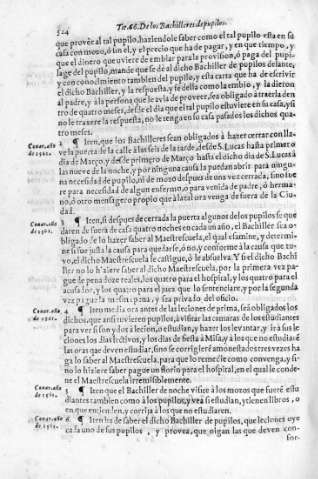 524 Tit. 46. De los Bachilleres de pupilos.
que provee al tal pupilo, haziendole saber como el tal pupilo esta en su
casa con moço, ò sin el, y el precio que ha de pagar, y en que tiempo, y
que el dinero que uviere de embiar para la provision, ò paga del pupi-
lage del pupilo, mande que se dè al dicho Bachiller de pupilos delante,
y con conocimiento tambien del pupilo, y esta carta que ha de escrivir
el dicho Bachiller, y la respuesta, y fe della como la embio, y la dieron
al padre, y à la persona que le avia de proveer, sea obligado à traerla den
tro de quatro meses, desde el dia que el tal pupilo estuviere en su casa, y si
no le traxere la respuesta, no le tenga en su casa passados los dichos qua-
tro meses.
¶ Iten, que los Bachilleres sean obligados à hazer cerrar con lla-
ve la puerta de la calle à las seis de la tarde, desde S. Lucas hasta primero
dia de Março, y desde primero de Março hasta el dicho dia de S. Lucas à
las nueve de la noche, y por ninguna causa la puedan abrir para ningu-
na necesidad de pupilo, ni de moso despues de una vez cerrada, sino fue
re para necesidad de algun enfermo, o para venida de padre, ò herma-
no, ò otro mensagero propio que à tal ora venga de fuera de la Ciu-
dad.
3 ¶ Iten, si despues de cerrada la puerta algunos de los pupilos se que
daren de fuera de casa quatro noches en cada un año, el Bachiller sea o-
bligado de lo hazer saber al Maestrescuela, el qual examine, y determi-
ne si fue justa la causa para quedarse, ò no, y conforme à la causa que tu-
vo, el dicho Maestrescuela le castigue, ò le absuelva. Y si el dicho Bachi
ller no lo hiziere saber al dicho Maestrescuela, por la primera vez pa-
gue de pena doze reales, los quatro para el hospital, y los quatro para el
acusador, y los quatro para el juez que lo sentenciare, y por la segunda
vez pague la misma pena, y sea privado del oficio.
4 ¶ Iten media ora antes de las leciones de prima, seà obligados los
dichos, que assi tuvieren pupilos, à visitar las camaras de los estudiantes
para ver si son ydos à lecion, o estudian, y hazer los levantar, y ir à sus le
ciones los dias lectivos, y los dias de fiesta à Missa, y à los que no estudiaré
las oras que deven estudiar, sino se corrigieré amonestados tres vezes ha
ga lo saber al Maestrescuela, para que lo remedie como convenga, y si-
no lo hiziere saber pague un florin para el hospital, en el qual le conde-
ne el Maestrescuela irremisiblemente.
5 ¶ Iten que el Bachiller de noche visite à los mozos que fueré estu
diantes tambien como à los pupilos, y vea si estudian, y tienen libros, o
en que entienden, y corrija à los que no estudiaren.
6 ¶ Iten ha de saber el dicho Bachiller de pupilos, que leciones oye
cada uno de sus pupilos, y provea, que oigan las que deven con-
for-